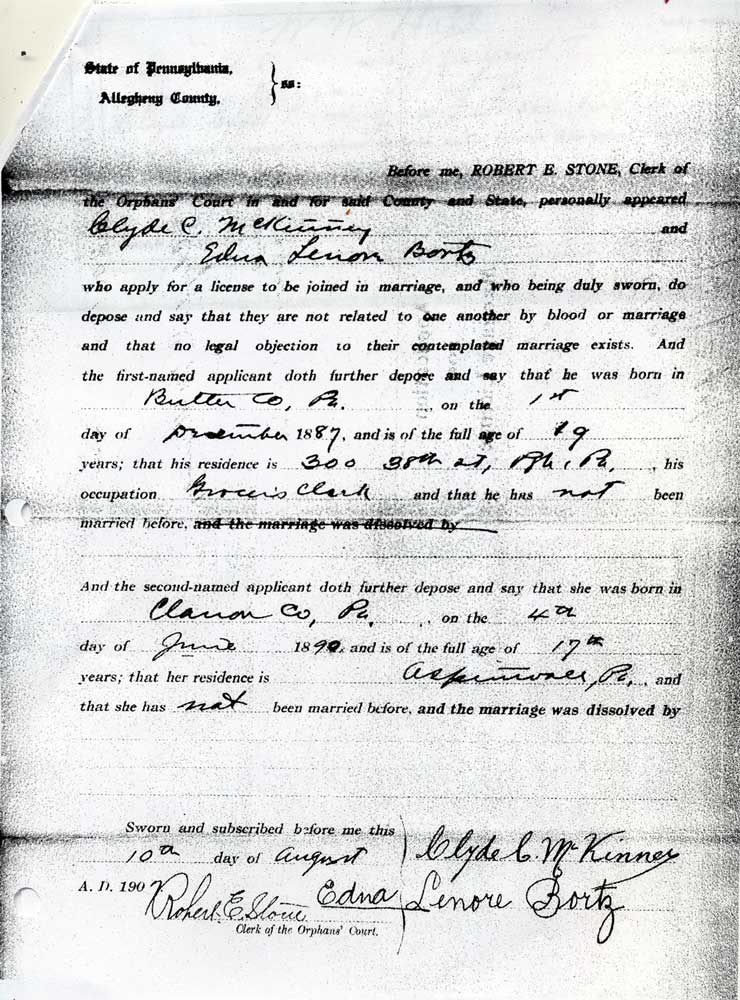 State of Pennsylvania,
Allegheny County, } ss:
Before me, ROBERT E. STONE, Clerk of
the Orphans' Court in and for said County and State, personally appeared
Clyde C. McKinney and
Edna Lenora Bortz
who apply for a license to be joined in marriage, and who being duly sworn, do
depose and say that they are not related to one another by blood or marriage
and that no legal objection to their contemplated marriage exists. And
the first-named applicant doth further depose and say that he was born in
Butler Co, Pa. , on the 1st
day of December 1887, and is of the full age of 19
years; that his residence is 300 38th st, Pgh, Pa. , his
occupation Grocers Clerk and that he has not been
married before, and the marriage was dissolved by
And the second-named applicant doth further depose and say that she was born in
Clarion Co, Pa. , on the 4th
day of June 1890, and is of the full age of 17th
years; that her residence is Aspinwall, Pa. , and
that she has not been married before, and the marriage was dissolved by
Sworn and subscribed before me this
10th day of August
Clyde C. McKinney
A. D. 1907
Robert E. Stone
Edna Lenore Bortz
Clerk of the Orphans' Court.